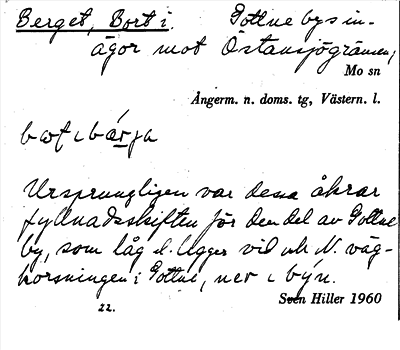 Berget, Bort i. Gottne bys in-
ägor mot Östansjögränsen,
Mo sn
Ångerm. n. doms. tg, Västern. l.
Ursprungligen var dessa åkrar
fyllnadsskiften för den del av Gottne
by, som låg o. ligger vid N. väg-
korsningen i Gottne, ner i byn.
Sven Hiller 1960
22.